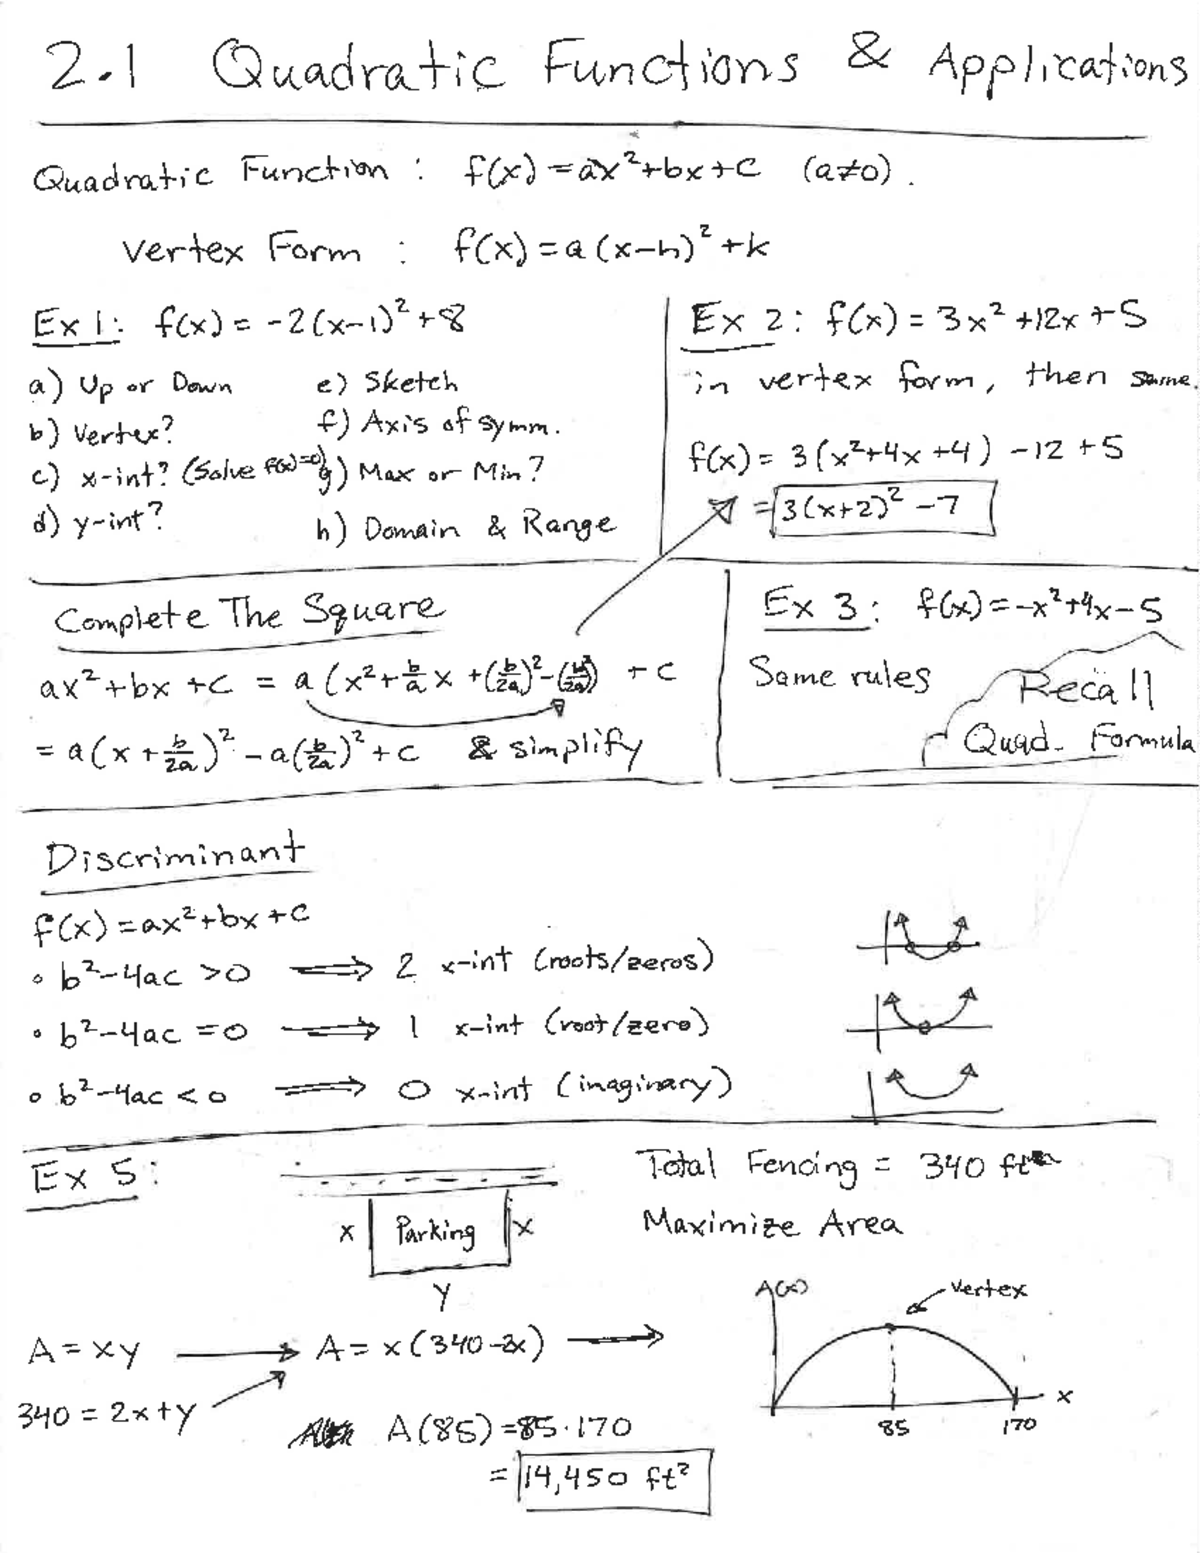 2.1 Quadratic Functions & Applications
Quadratic Function : f(x) = ax²+bx+c (a≠0).
Vertex Form : f(x) = a(x-h)²+k
Ex 1: f(x) = -2(x-1)²+8
a) Up or Down
b) Vertex?
c) x-int? (Solve f(x)=0)
d) y-int?
e) Sketch
f) Axis of symm.
g) Max or Min?
h) Domain & Range
Ex 2: f(x) = 3x²+12x+5
in vertex form, then same.
f(x) = 3(x²+4x+4) -12+5
= 3(x+2)²-7
Complete The Square
ax²+bx+c = a(x²+b/a x+(b/2a)²-(b/2a)²) + c
= a(x+b/2a)²-a(b/2a)²+c & simplify
Ex 3: f(x)=-x²+4x-5
Same rules
Recall
Quad. Formula
Discriminant
f(x)=ax²+bx+c
• b²-4ac >0 ⟹ 2 x-int (roots/zeros)
• b²-4ac =0 ⟹ 1 x-int (root/zero)
• b²-4ac <0 ⟹ 0 x-int (imaginary)
Ex 5:
x Parking x
y
Total Fencing = 340 ft
Maximize Area
A = xy → A = x(340-2x) →
340 = 2x+y
A(85) = 85·170
= 14,450 ft²
A(x)
Vertex
x
85 170